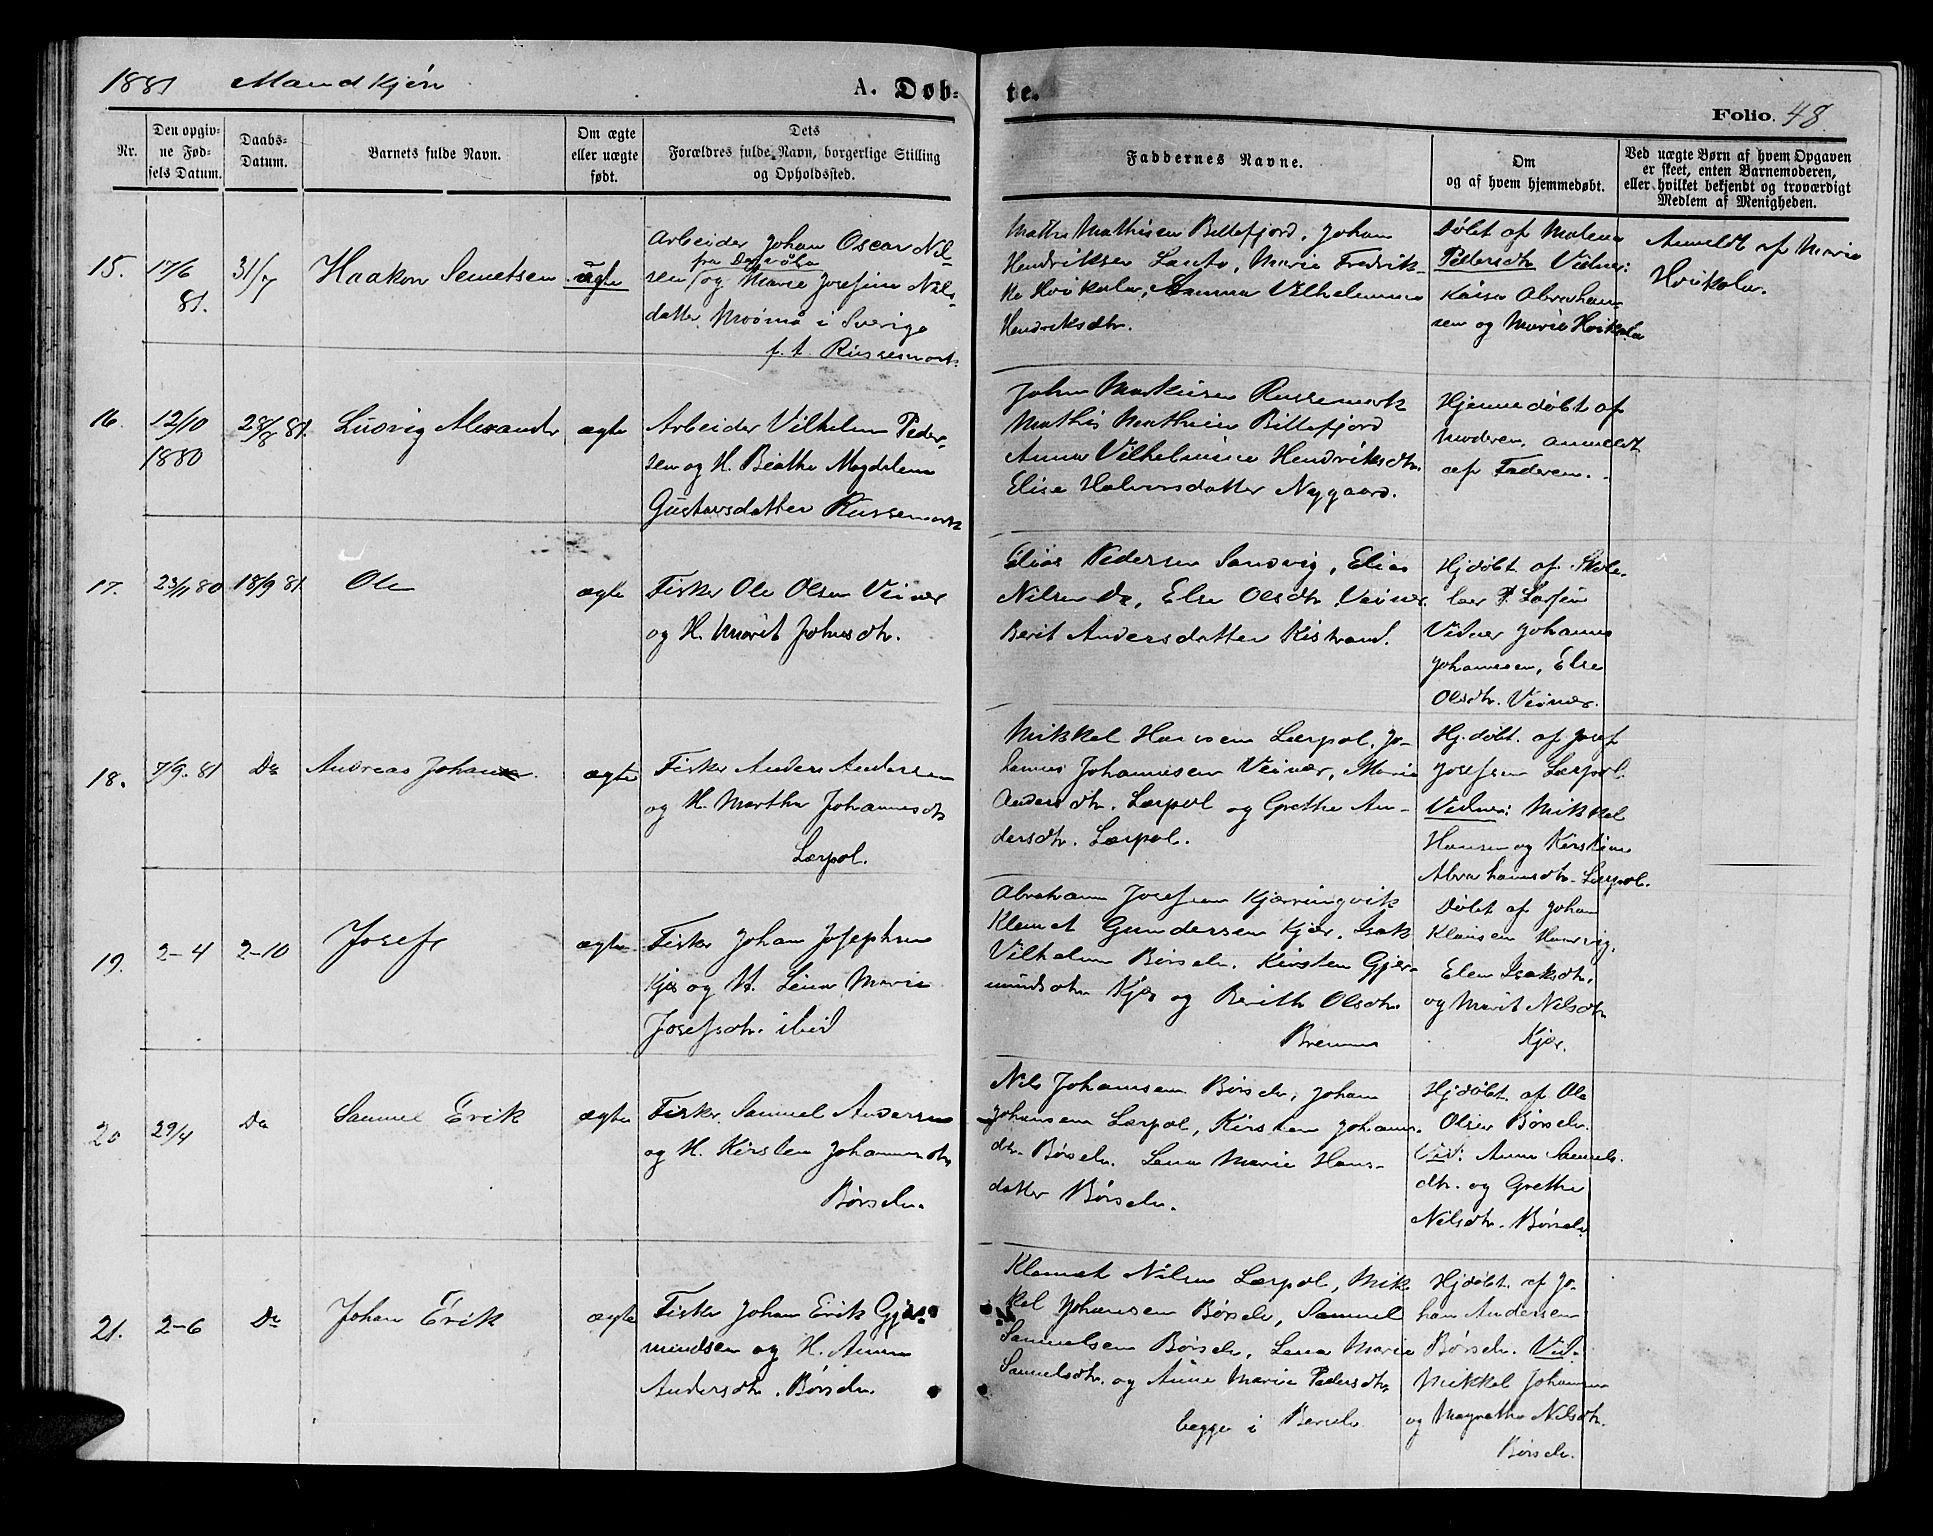 1881 Mandkjøn
A. Døb-
te.
Folio. 48.
Nr.
Den opgiv-
ne Fød-
sels Datum.
Daabs-
Datum.
Barnets fulde Navn.
Om ægte
eller uægte
født.
Dets
Forældres fulde Navn, borgerlige Stilling
og Opholdssted.
Faddernes Navne.
Om
og af hvem hjemmedøbt.
Ved uægte Børn af hvem Opgaven
er skeet, enten Barnemoderen,
eller hvilket bekjendt og troværdigt
Medlem af Menigheden.
15.
17/6
81.
31/7
Haakon
uægte
Arbeider Johan Oscar Nil-
sen og Marie Josefine Nils-
datter i Sverige
f. t. Russemark.
Mathis Mathisen Billefjord, Johan
Hendriksen Lanto, Marie Fredrik-
ke Hvikola, Vilhelmine
Hendriksdtr.
Døbt af Malena
Pedersdtr. Vidner:
Kaisa Abraham
sen og Marie Hvikola
Anmeldt af Marie
Hvikola.
16.
12/10
1880
28/8 81.
Ludvig Alexander
ægte
Arbeider Vilhelm Peder-
sen og H. Beathe Magdalena
Gustavsdatter Russemark
Johan Markusen Russemark
Mathis Mathisen Billefjord
Anna Vilhelmine Hendriksdtr.
Elise Halvorsdatter Nygaard.
Hjemmedøbt af
Moderen, anmeldt
af Faderen.
17.
23/11 80
18/9 81
Ole
ægte
Fisker Ole Olsen Veinær
og H. Marit Johnsdtr.
Elias Pedersen Sandvig, Elias
Nilsen Do, Else Olsdtr. Veinær.
Berit Andersdatter Kistrand.
Hjdøbt af Skole-
lær P. Larsen
Vidner Johannes
Johannesen, Else
Olsdtr. Veinær.
18.
7/9. 81
Do
Andreas Johan
ægte
Fisker Anders Andersen
og H. Marthe Johannesdtr
Lærpol.
Mikkel Hansen Lærpol, Jo-
hannes Johannesen Veinær, Marie
Andersdtr. Lærpol og Grethe An-
dersdtr. Lærpol.
Hj.døbt. af Josef
Josefsen Lærpol.
Vidner: Mikkel
Hansen og Kirstine
Abrahamsdtr. Lærpol.
19.
2-4
2-10
Josef
ægte
Fisker Johan Josephsen
Kjæs og H. Lena Marie
Josefsdtr. ibid
Abraham Josefsen Kjærringvik
Klemet Gundersen Kjæs, Isak
Vilhelm Børselv. Kirsten Gjer-
mundsdtr Kjæs og Berith Olsdtr.
Brenna
Døbt af Johan
Klausen Hamvig.
Elen Isaksdtr.
og Marit Nilsdtr.
Kjæs.
20
29/4
Do
Samuel Erik
ægte
Fisker Samuel Andersen
og H. Kirsten Johannesdtr
Børselv.
Nils Johansen Børselv, Johan
Johansen Lærpol, Kirsten Johans.
dtr. Børselv. Lena Marie Hans-
datter Børselv.
Hjdøbt. af Ole
Olsen Børselv.
Vid: Anne Samuels.
dtr. og Grethe
Nilsdtr. Børselv
21.
2-6
Do
Johan Erik
ægte
Fisker Johan Erik Gjer-
mundsen og H. Anna
Andersdtr. Børselv.
Klemet Nilsen Lærpol, Mik
kel Johansen Børselv, Samuel
Samuelsen Børselv, Lena Marie
Samuelsdtr. og Anne Marie Pedersdtr.
begge i Børselv
Hjdøbt. af Jo-
han Andersen
Børselv. Vid.
Mikkel Johansen
og Magrethe Nilsdtr.
Børselv.